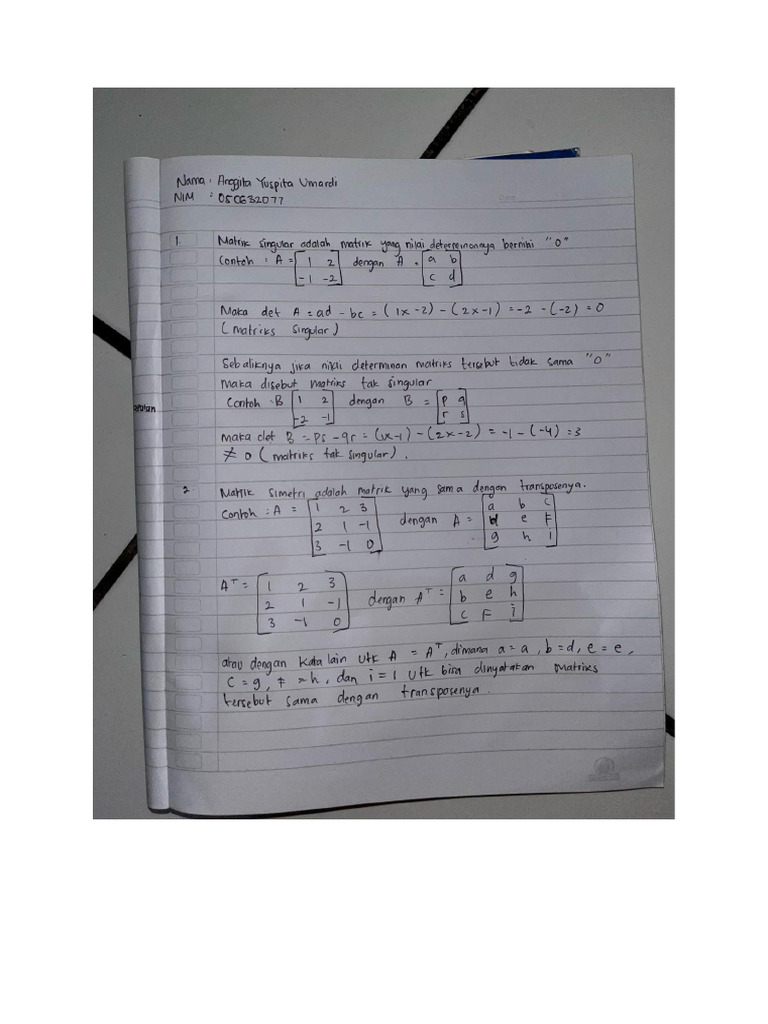 Nama : Anggita Yuspita Umardi
NIM : 050632077
1. Matrik singular adalah matrik yang nilai determinannya bernilai "0"
Contoh : A = [ 1 2 dengan A = [ a b
-1 -2 ] c d ]
Maka det A = ad - bc = (1x-2) - (2x-1) = -2 - (-2) = 0
(matriks singular)
Sebaliknya jika nilai determinan matriks tersebut tidak sama "0"
maka disebut matriks tak singular
Contoh : B [ 1 2 dengan B = [ p q
-2 -1 ] r s ]
maka det B = ps - qr = (1x-1) - (2x-2) = -1 - (-4) = 3
≠ 0 (matriks tak singular).
2. Matrik simetri adalah matrik yang sama dengan transposenya.
Contoh : A = [ 1 2 3 dengan A = [ a b c
2 1 -1 d e f
3 -1 0 ] g h i ]
Aᵀ = [ 1 2 3 dengan Aᵀ = [ a d g
2 1 -1 b e h
3 -1 0 ] c f i ]
atau dengan kata lain utk A = Aᵀ, dimana a = a, b = d, e = e,
c = g, f = h, dan i = i utk bisa dinyatakan matriks
tersebut sama dengan transposenya.